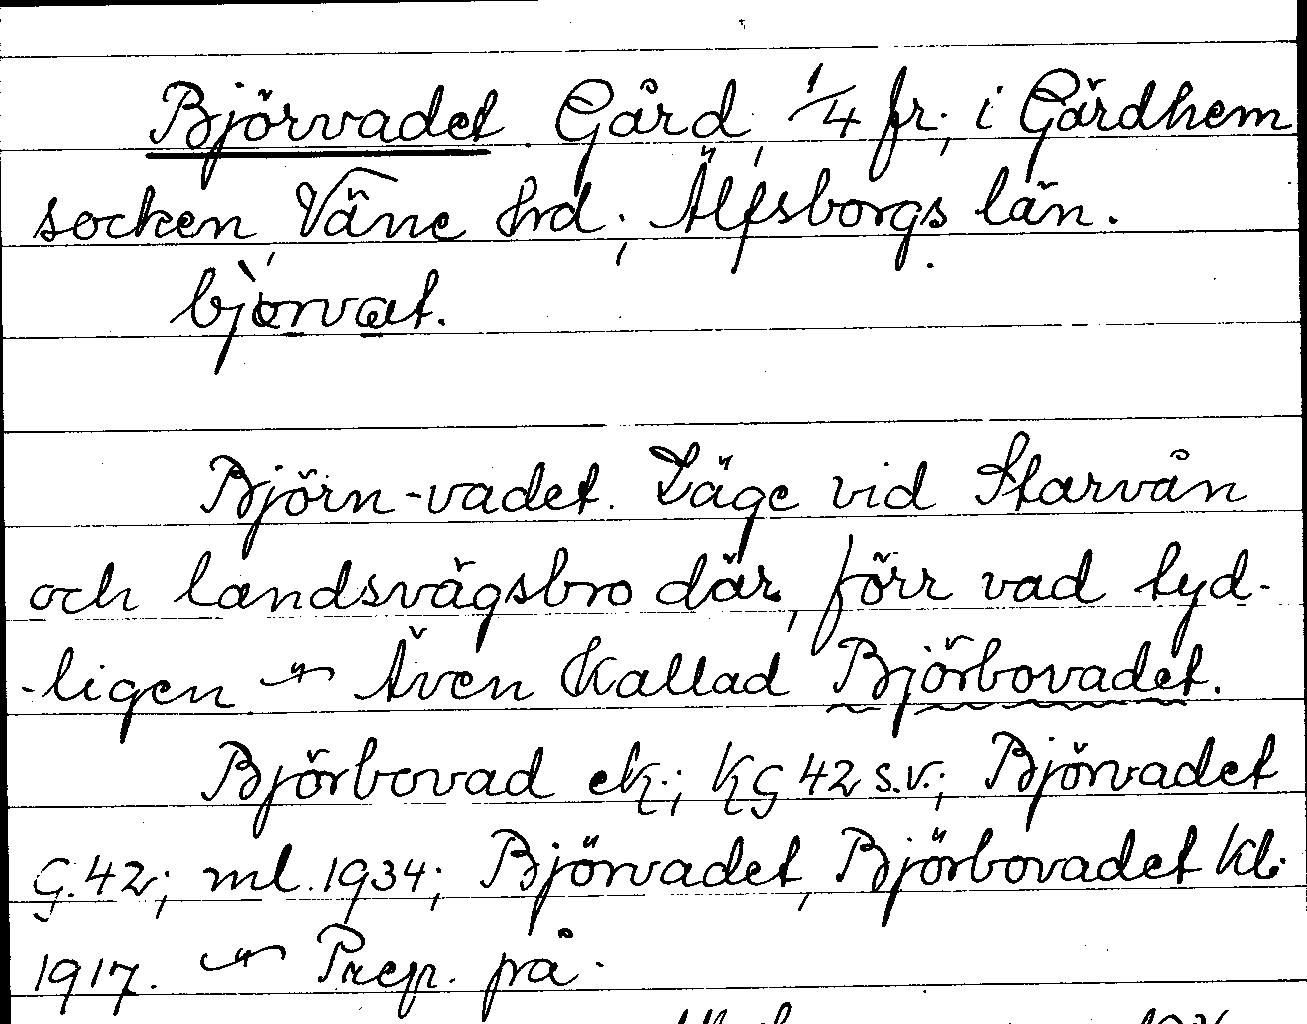 Björvadet Gård, 1/4 fr., i Gärdhem
socken, Väne hrd., Älfsborgs län.
bjò̀rvat.
Björn-vadet. Läge vid Starvån
och landsvägsbro där, förr vad tyd-
-ligen — Även kallad Björbovadet.
Björbovad ek.; KG 42 s.v.; Björvadet
G. 42; ml. 1934; Björvadet, Björbovadet kb.
1917. — Prep. på.